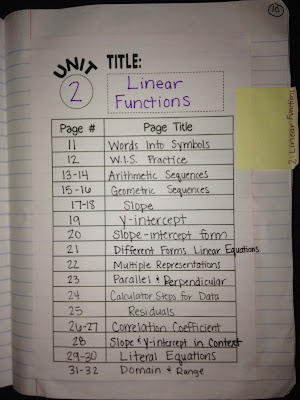 10
UNIT 2
TITLE:
Linear
Functions
2: Linear Functions
Page # Page Title
11 Words Into Symbols
12 W.I.S. Practice
13-14 Arithmetic Sequences
15-16 Geometric Sequences
17-18 Slope
19 Y-intercept
20 Slope-intercept form
21 Different Forms Linear Equations
22 Multiple Representations
23 Parallel & Perpendicular
24 Calculator Steps for Data
25 Residuals
26-27 Correlation Coefficient
28 Slope & Y-intercept in Context
29-30 Literal Equations
31-32 Domain & Range